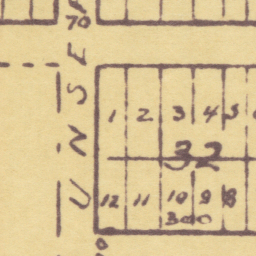 70
UNSE
1 2 3 4 5
32
12 11 10 9 8
300